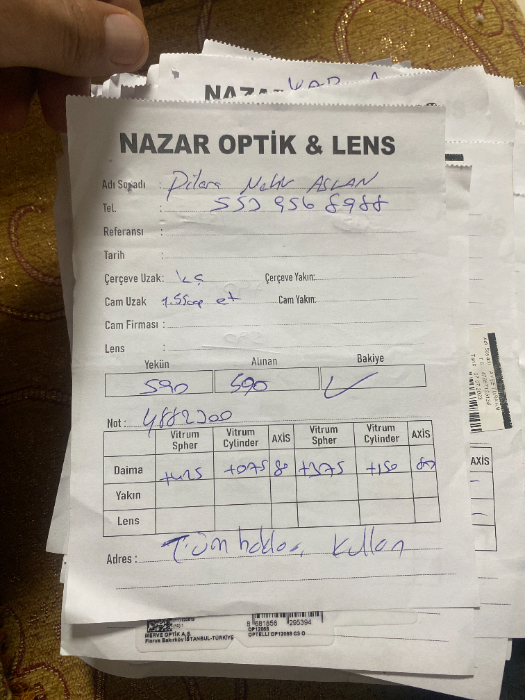 NAZAR OPTİK & LENS
Adı Soyadı : Dilara Nehir ASLAN
Tel. : 553 956 8988
Referansı :
Tarih
Çerçeve Uzak: Çerçeve Yakın:
Cam Uzak Cam Yakın:
Cam Firması :
Lens :
Yekün Alınan Bakiye
590 590 ✓
Not : 4882200
Vitrum Spher Vitrum Cylinder AXİS Vitrum Spher Vitrum Cylinder AXİS
Daima +425 +075 80 +375 +150 80
Yakın
Lens
Adres : Tüm Kullan
AXİS
8 681656 295394
MERVE OPTİK A.Ş.
OP12088
OPTELLI OP12088 C3 O